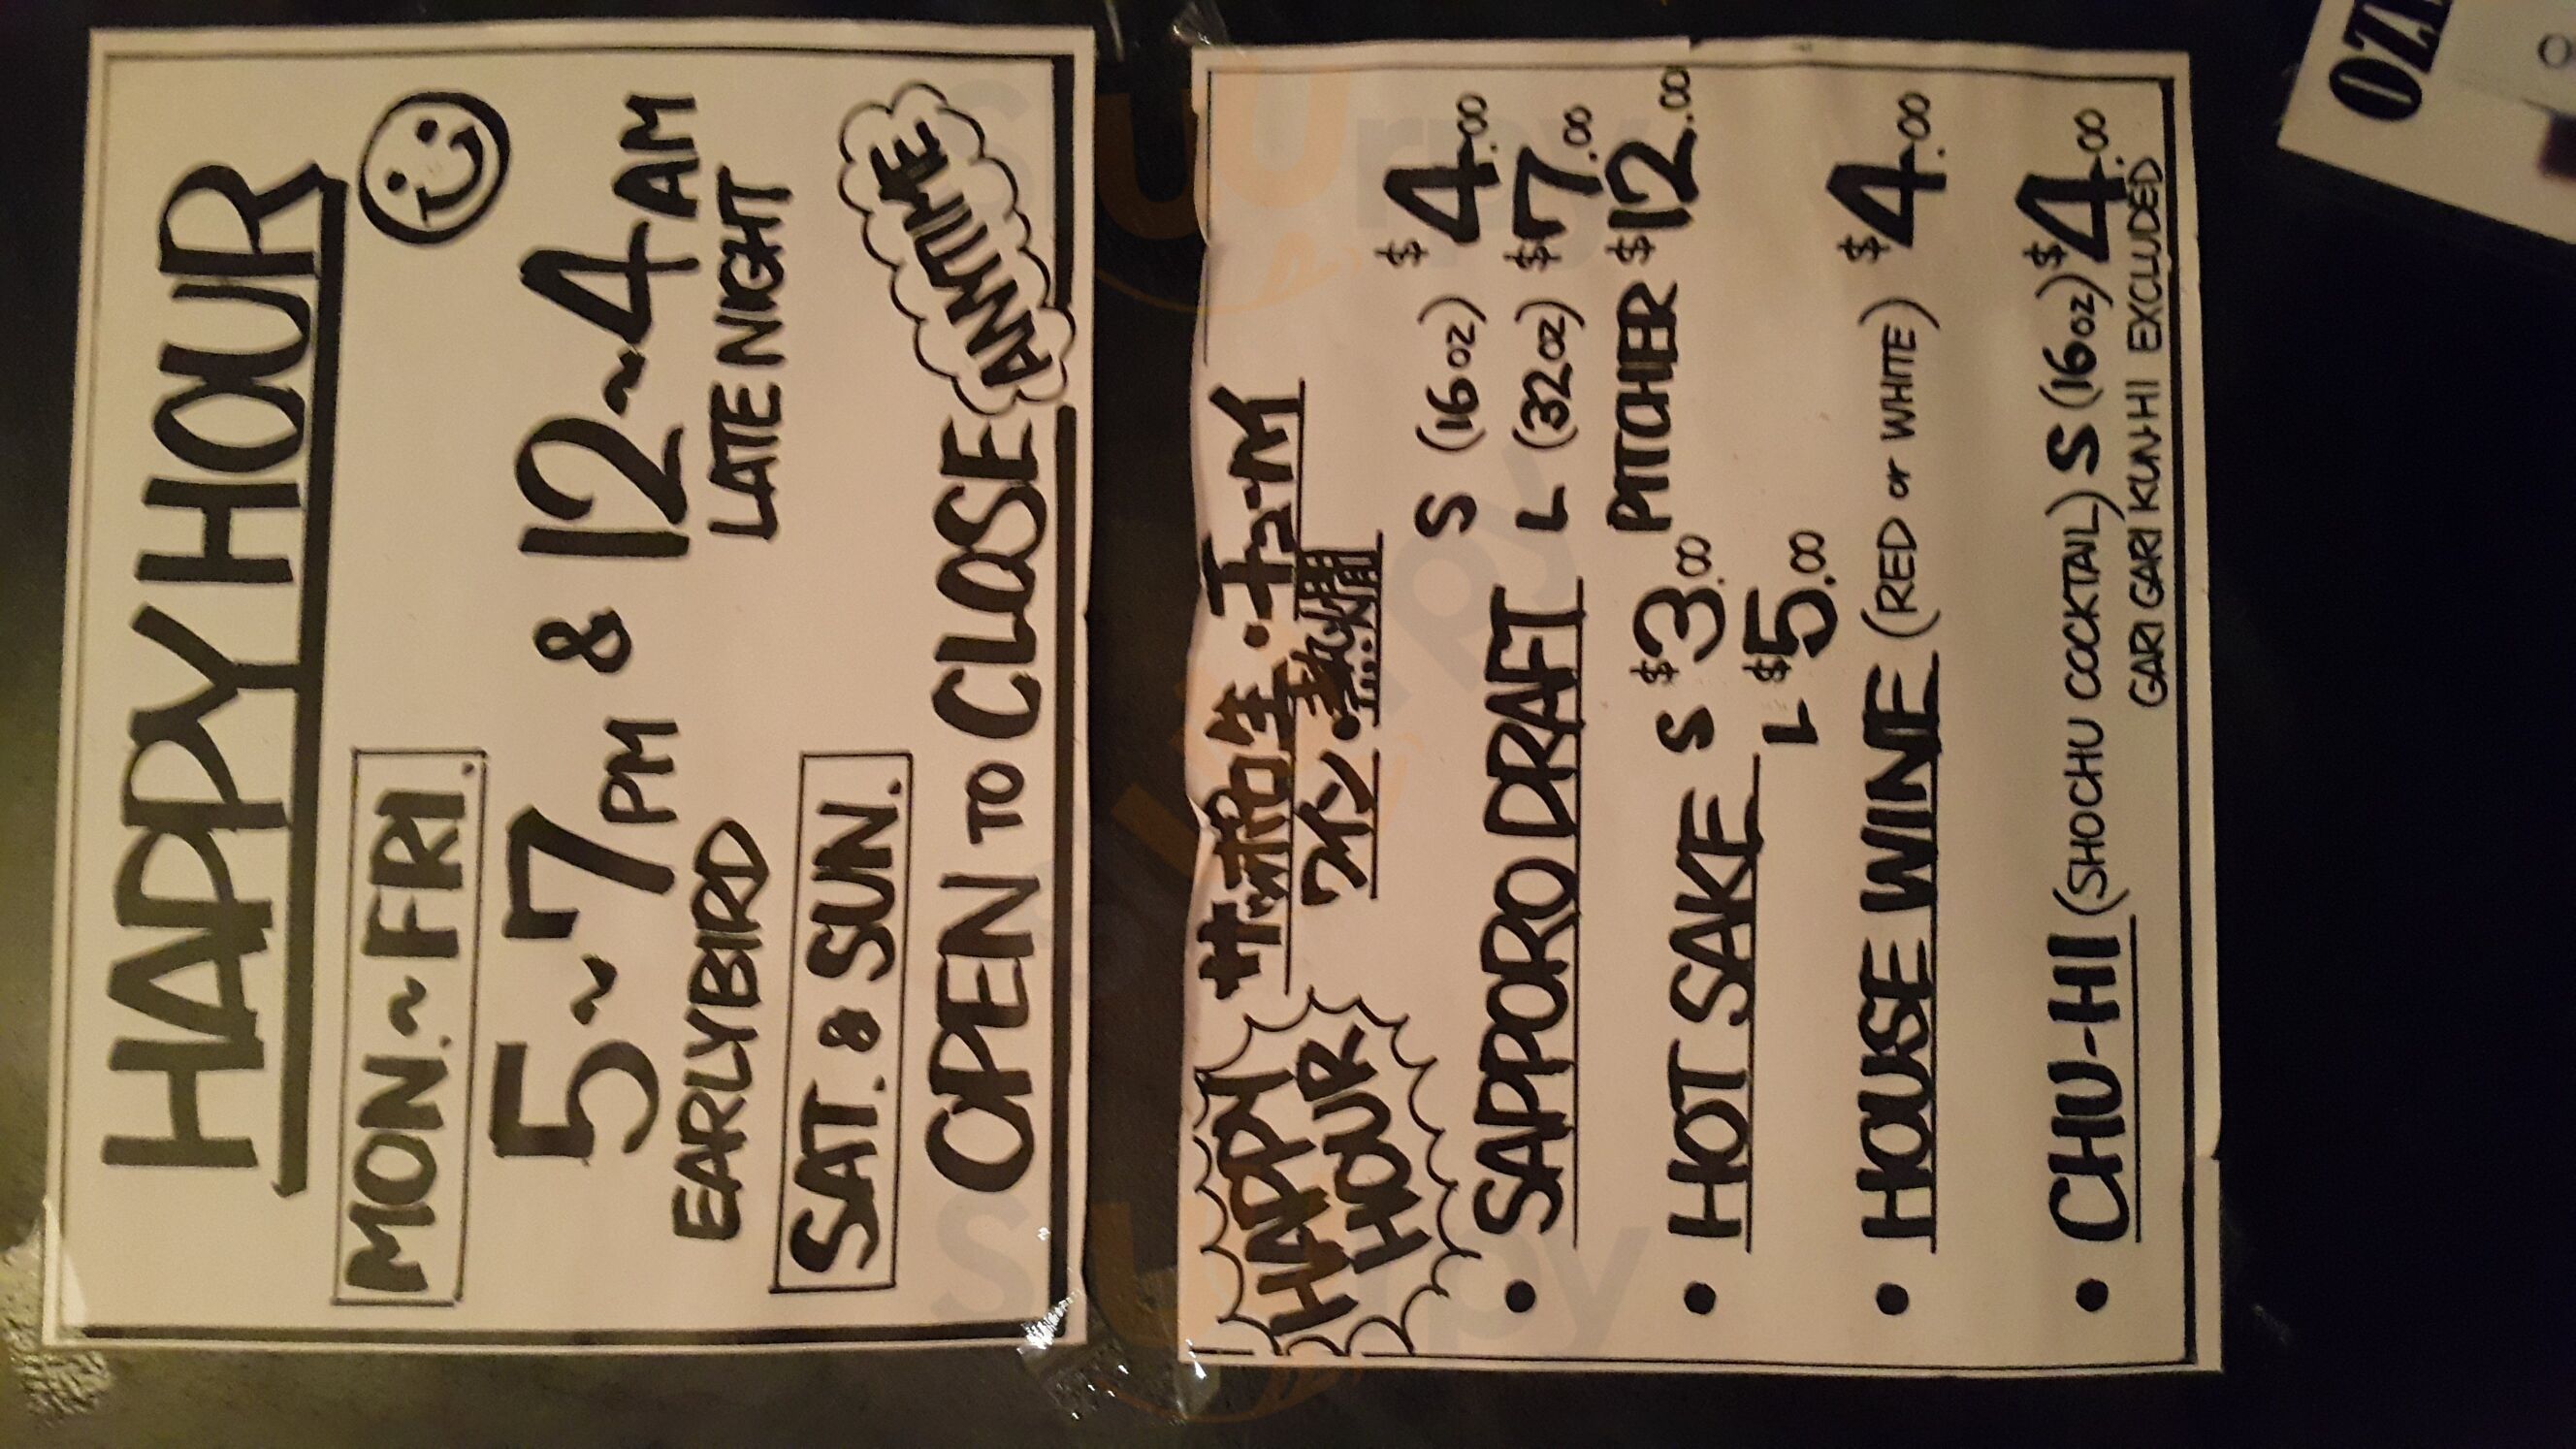 HAPPY HOUR
MON. ~ FRI.
5~7PM & 12~4AM
EARLYBIRD LATE NIGHT
SAT. & SUN.
OPEN TO CLOSE ANYTIME
HAPPY HOUR
サッポロ生・チューハイ
ワイン・熱燗
• SAPPORO DRAFT S (16oz) $4.00
L (32oz) $7.00
PITCHER $12.00
• HOT SAKE S $3.00
L $5.00
• HOUSE WINE (RED or WHITE) $4.00
• CHU-HI (SHOCHU COCKTAIL) S (16oz) $4.00
GARI GARI KUN-HI EXCLUDED